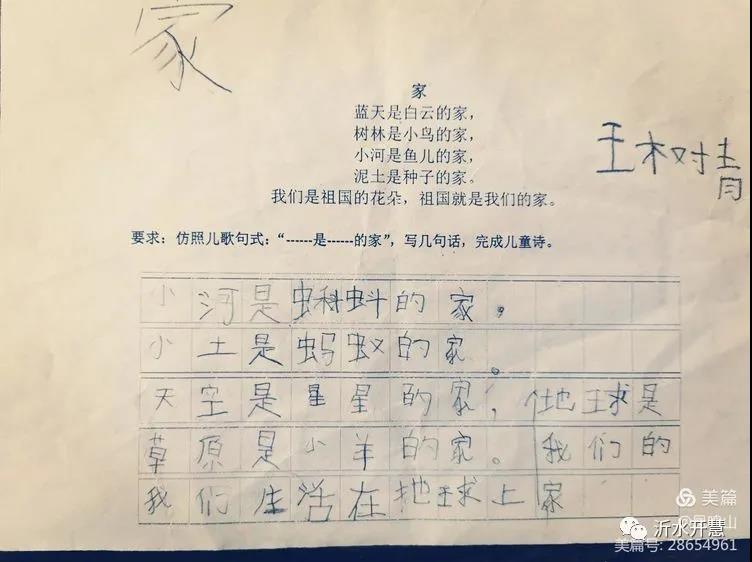 家
家
蓝天是白云的家，
树林是小鸟的家，
小河是鱼儿的家，
泥土是种子的家。
我们是祖国的花朵，祖国就是我们的家。
王树青
要求：仿照儿歌句式：“------是------的家”，写几句话，完成儿童诗。
小河是蝌蚪的家。
小土是蚂蚁的家。
天空是星星的家，
草原是小羊的家。
我们生活在地球上
地球是
我们的
家
美篇
沂水开慧
美篇号: 28654961